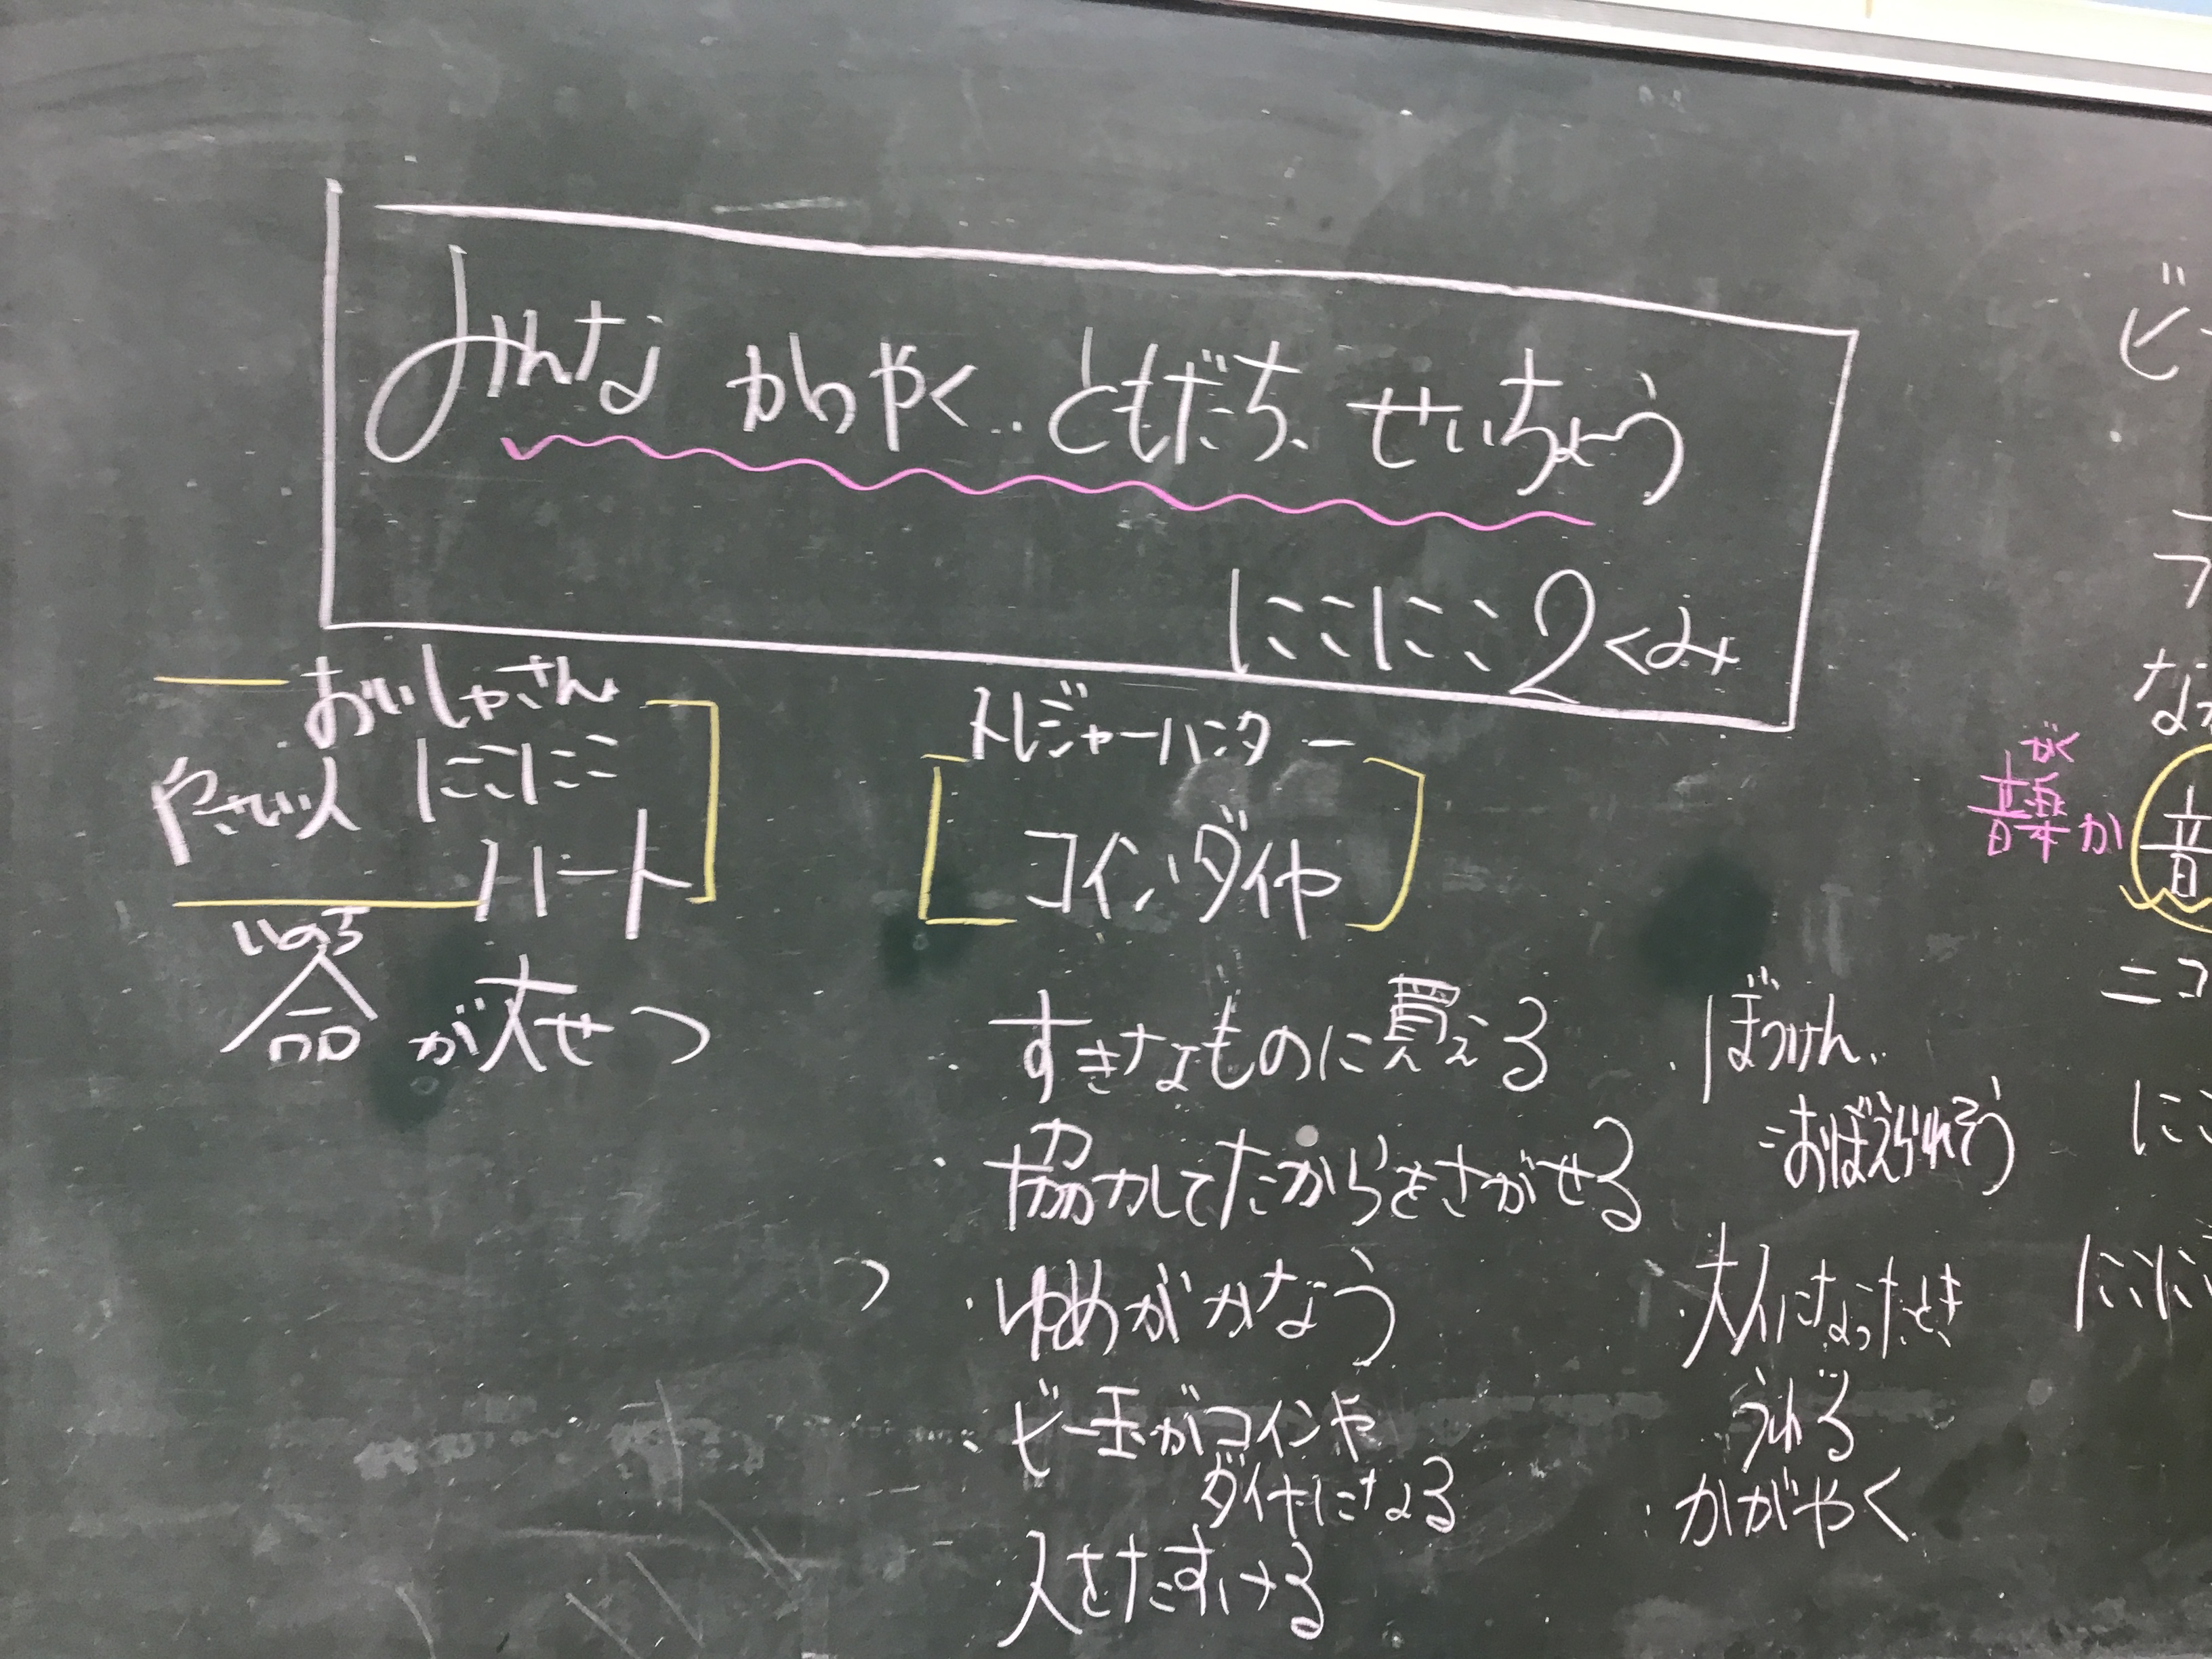 みんな かがやく ともだち せいちょう
にこにこ2くみ
おいしゃさん
やさい人 にこにこ
ハート
いのち
命が大せつ
トレジャーハンター
コイン、ダイヤ
・すきなものに買える
・協力してたからをさがせる
・ゆめがかなう
・ビー玉がコインや
ダイヤになる
人をたすける
・ぼうけん
おぼえられそう
・大人になったとき
うれる
・かがやく
がく
音楽か
音
ニコ